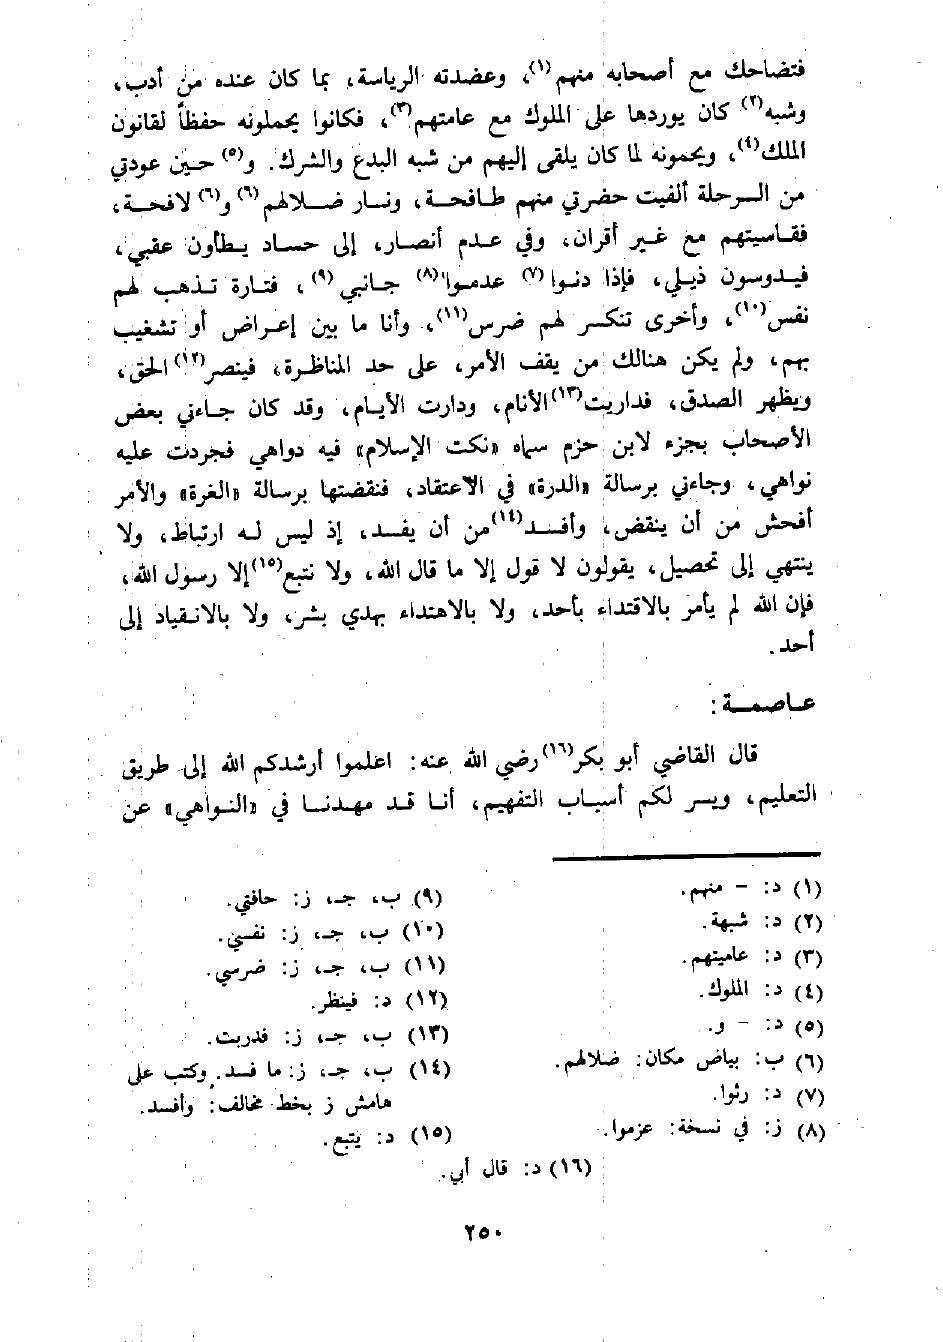 فتضاحك مع أصحابه منهم(١)، وعضدته الرياسة، بما كان عنده من أدب،
وشبه(٢) كان يوردها على الملوك مع عامتهم(٣)، فكانوا يحملونه حفظاً لقانون
الملك(٤)، ويحمونه لما كان يلقى إليهم من شبه البدع والشرك. و(٥) حين عودتي
من الرحلة ألفيت حضرتي منهم طافحة، ونار ضلالهم(٦) و(٦) لافحة،
فقاسيتهم مع غير أقران، وفي عدم أنصار، إلى حساد يطأون عقبي،
فيدوسون ذيلي، فإذا دنوا(٧) عدموا(٨) جانبي(٩)، فتارة تذهب لهم
نفس(١٠)، وأخرى تنكسر لهم ضرس(١١)، وأنا ما بين إعراض أو تشغيب
بهم، ولم يكن هنالك من يقف الأمر، على حد المناظرة، فينصر(١٢) الحق،
ويظهر الصدق، فداريت(١٣) الأنام، ودارت الأيام، وقد كان جاءني بعض
الأصحاب بجزء لابن حزم سماه «نكت الإسلام» فيه دواهي فجردت عليه
نواهي، وجاءني برسالة «الدرة» في الاعتقاد، فنقضتها برسالة «الغرة» والأمر
أفحش من أن ينقض، وأفسد(١٤) من أن يفسد، إذ ليس له ارتباط، ولا
ينتهي إلى تحصيل، يقولون لا قول إلا ما قال الله، ولا نتبع(١٥) إلا رسول الله،
فإن الله لم يأمر بالاقتداء بأحد، ولا بالاهتداء بهدي بشر، ولا بالانقياد إلى
أحد.
عاصمة:
قال القاضي أبو بكر(١٦) رضي الله عنه: اعلموا أرشدكم الله إلى طريق
التعليم، ويسر لكم أسباب التفهيم، أنا قد مهدنا في «النواهي» عن
(١) د: - منهم.
(٢) د: شبهة.
(٣) د: عاميتهم.
(٤) د: الملوك.
(٥) د: - و.
(٦) ب: بياض مكان: ضلالهم.
(٧) د: رثوا.
(٨) ز: في نسخة: عزموا.
(٩) ب، جـ، ز: حافتي.
(١٠) ب، جـ، ز: نفسي.
(١١) ب، جـ، ز: ضرسي.
(١٢) د: فينظر.
(١٣) ب، جـ، ز: فدربت.
(١٤) ب، جـ، ز: ما فسد. وكتب على
هامش ز بخط مخالف: وأفسد.
(١٥) د: يتبع.
(١٦) د: قال أبي.
٢٥٠